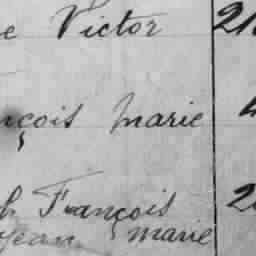 e Victor 21
nçois Marie 4
h François 2
Jean Marie